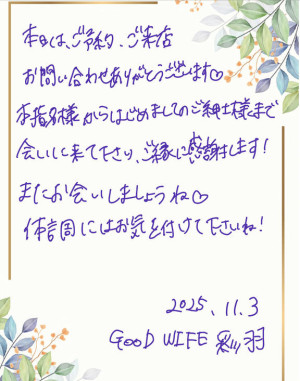 本日は、ご予約、ご来店
お問い合わせありがとうございます♡
本指名様からはじめましてのご紳士様まで
会いに来て下さり、ご縁に感謝します!
またお会いしましょうね♡
体調にはお気を付けて下さいね!
2025.11.3
GOOD WIFE 彩羽